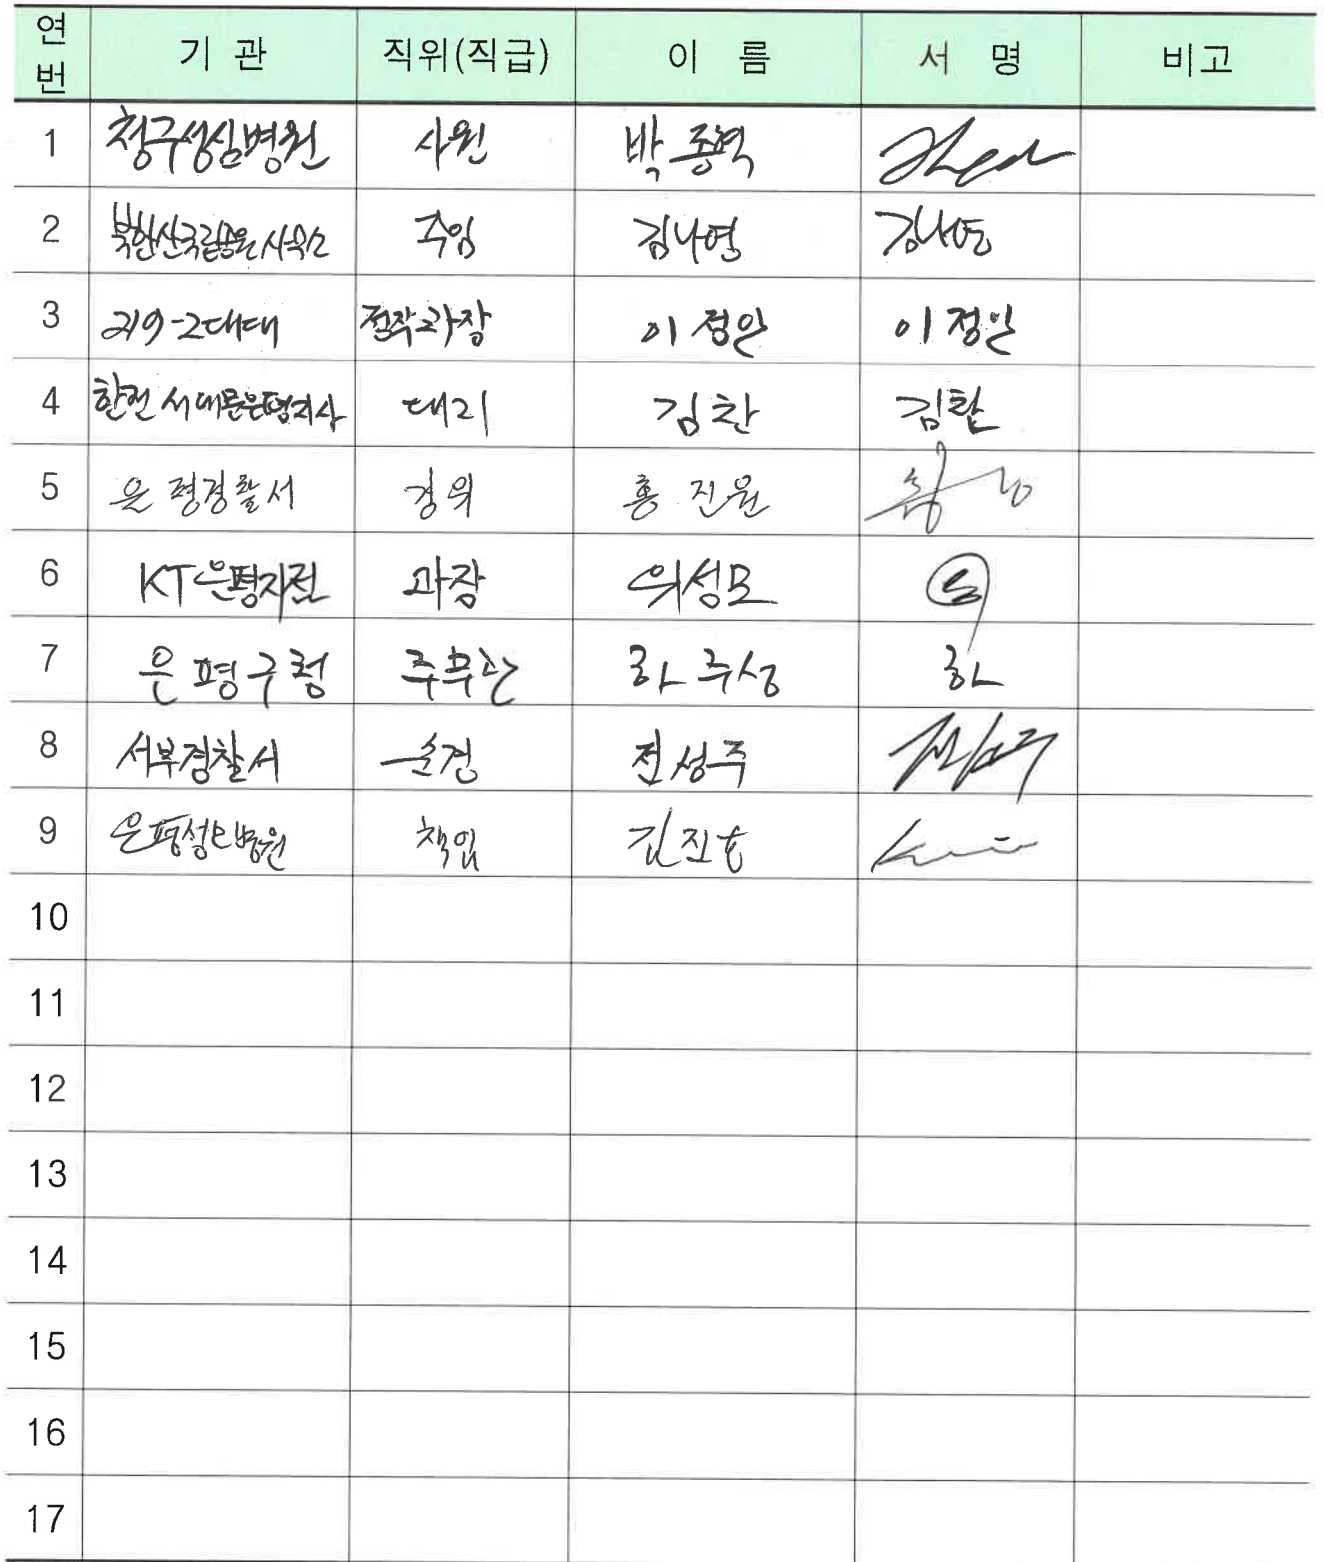 연번 기 관 직위(직급) 이 름 서 명 비고
1 청구성심병원 사원 박종혁
2 북한산국립공원사무소 주임 김나영 김나영
3 219-2대대 전작과장 이정일 이정일
4 한전서대문은평지사 대리 김찬 김찬
5 은평경찰서 경위 홍진원
6 KT은평지점 과장 위성모
7 은평구청 주무관 하주성 하
8 서부경찰서 순경 전성주 전성주
9 은평성모병원 책임 김진호
10
11
12
13
14
15
16
17